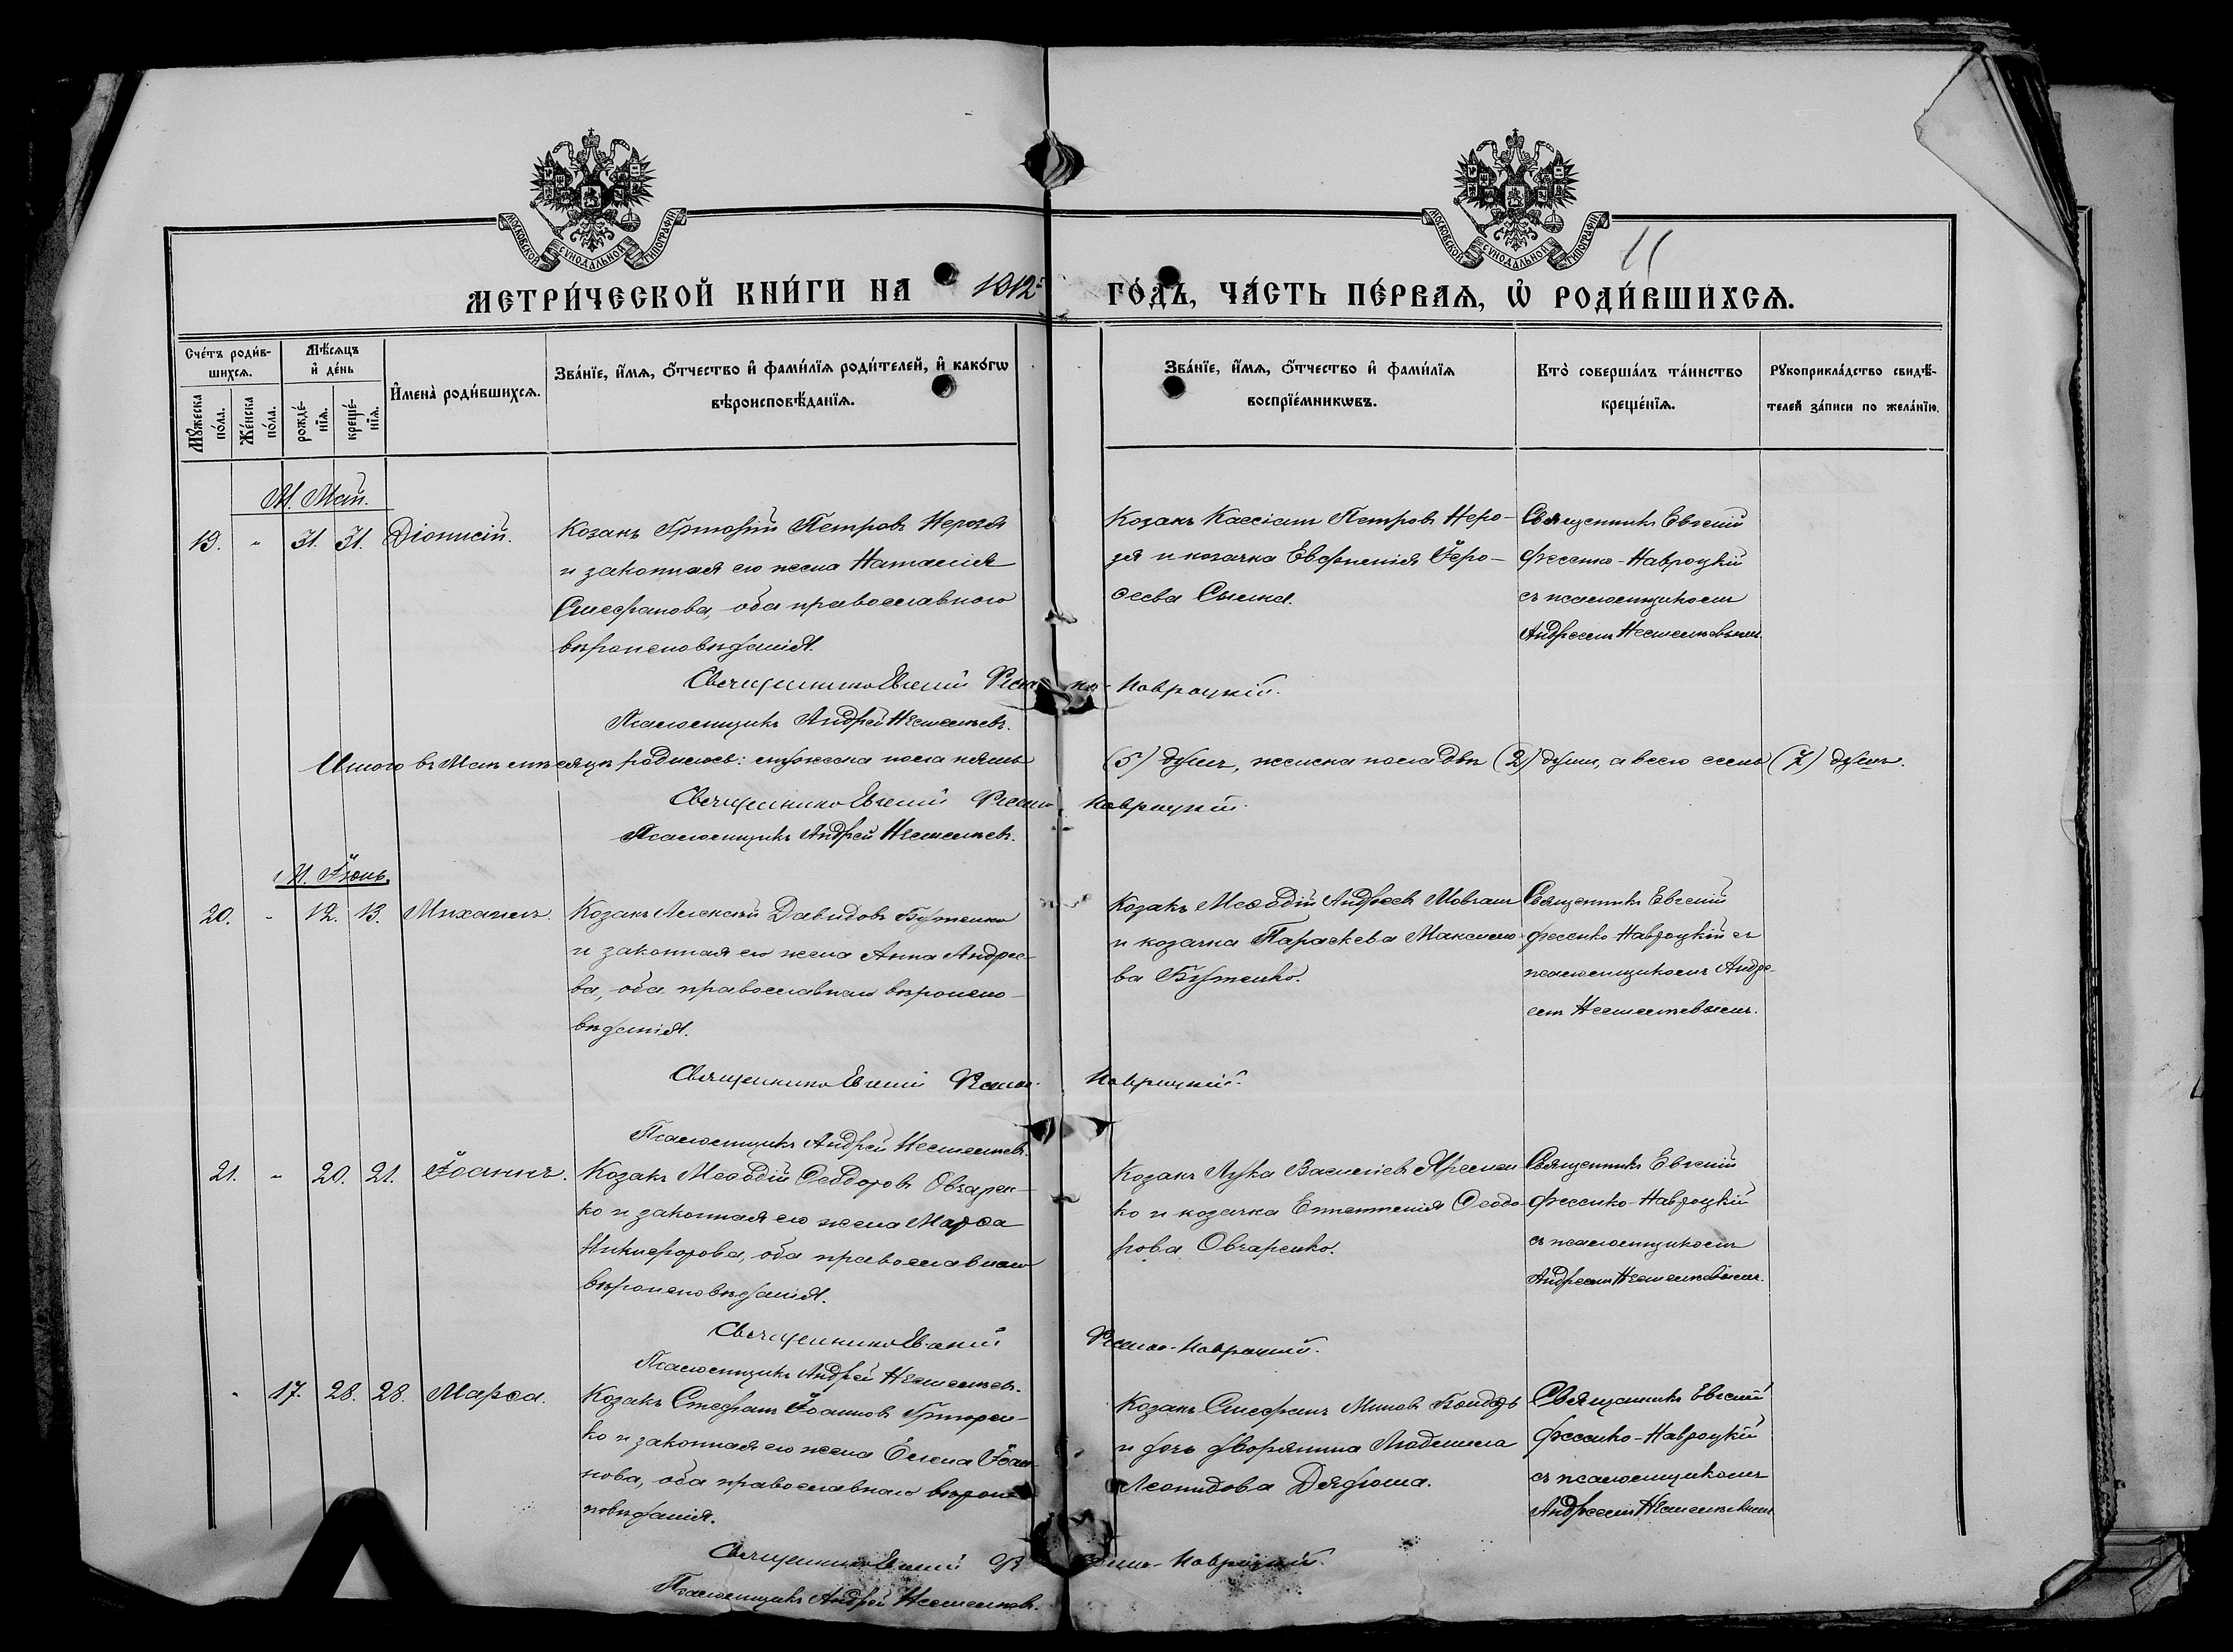 МОСКОВСКОЙ СѴНОДАЛЬНОЙ ТИПОГРАФІИ
МОСКОВСКОЙ СѴНОДАЛЬНОЙ ТИПОГРАФІИ
11
МЕТРИ́ЧЕСКОЙ КНИ́ГИ НА 1912 ГО́ДЪ, ЧА́СТЬ ПЕ́РВАЯ, Ѡ҆ РОДИ́ВШИХСЯ.
Сче́тъ роди́вшихся.
Мѣ́сяцъ и҆ де́нь
Мꙋ́жеска по́ла.
Же́нска по́ла.
рожде́нїѧ.
креще́нїѧ.
И҆мена̀ роди́вшихсѧ.
Зва́нїе, и҆́мѧ, ѻ҆́тчество и҆ фами́лїѧ роди́телей, и҆ како́гѡ
вѣроисповѣ́данїѧ.
Зва́нїе, и҆́мѧ, ѻ҆́тчество и҆ фами́лїѧ
воспрїе́мникѡвъ.
Кто̀ соверша́лъ та́инство
креще́нїѧ.
Рꙋкоприкла́дство свидѣ́-
телей за́писи по жела́нїю.
М. Май.
19. " 31. 31. Діонисій.
Козакъ Григорій Петровъ Нерозя
и законная его жена Наталія
Стефанова, оба православного
вѣроисповѣданія.
Козакъ Кассіанъ Петровъ Неро-
зя и козачка Евфимія
Священникъ Евгеній
Фесенко-Навроцкій
съ псаломщикомъ
Андреемъ
Священникъ Евгеній Фесенко-Навроцкій.
Псаломщикъ Андрей
Итого въ Маѣ мѣсяцѣ родилось: мужеска пола пять (5) душъ, женска пола двѣ (2) души, а всего семь (7) душъ.
Священникъ Евгеній Фесенко Навроцкій
Псаломщикъ Андрей
М. Іюнь.
20. " 12. 13. Михаилъ.
Козакъ Алексѣй Давидовъ Бутенко
и законная его жена Анна Андрее-
ва, оба православнаго вѣроиспо-
вѣданія.
Козакъ Меѳодій Андреевъ Мовчанъ
и козачка Параскева Максимо-
ва Бутенко.
Священникъ Евгеній
Фесенко-Навроцкій съ
псаломщикомъ Андре-
емъ
Священникъ Евгеній Фесенко- Навроцкій.
Псаломщикъ Андрей
21. " 20. 21. Іоаннъ.
Козакъ Меѳодій Ѳеодоровъ Овчарен-
ко и законная его жена Марѳа
Никифорова, оба православнаго
вѣроисповѣданія.
Козакъ Лука Васильевъ Яремен-
ко и козачка Епистимія Ѳеодо-
рова Овчаренко.
Священникъ Евгеній
Фесенко-Навроцкій
съ псаломщикомъ
Андреемъ
Священникъ Евгеній Фесенко-Навроцкій.
Псаломщикъ Андрей
" 17. 28. 28. Марѳа.
Козакъ Стефанъ Іоанновъ Григорен-
ко и законная его жена Елена Іоан-
нова, оба православнаго вѣроис-
повѣданія.
Козакъ Стефанъ Миновъ Бондарь
и дочь дворянина Людмила
Леонидова
Священникъ Евгеній
Фесенко-Навроцкій
съ псаломщикомъ
Андреемъ
Священникъ Евгеній Фесенко-Навроцкій.
Псаломщикъ Андрей